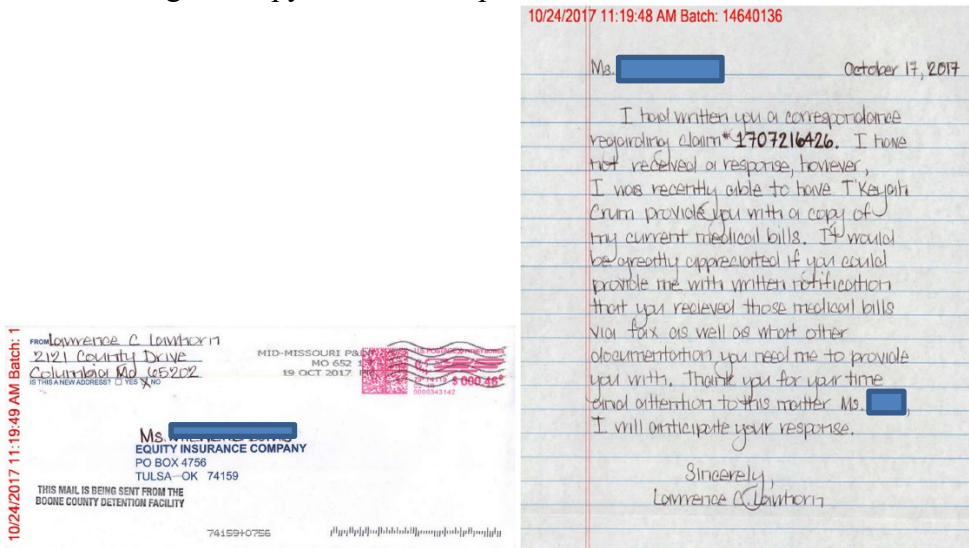 10/24/2017 11:19:49 AM Batch: 1
FROM Lawrence C Lawhorn
2121 County Drive
Columbia Mo 65202
IS THIS A NEW ADDRESS? YES NO
MID-MISSOURI P&DC
MO 652
19 OCT 2017
US POSTAGE
$ 000.46
0000343142
Ms.
EQUITY INSURANCE COMPANY
PO BOX 4756
TULSA OK 74159
THIS MAIL IS BEING SENT FROM THE
BOONE COUNTY DETENTION FACILITY
74159+0756
10/24/2017 11:19:48 AM Batch: 14640136
Ms. October 17, 2017
I had written you a correspondance
regarding claim# 1707216426. I have
not received a response, however,
I was recently able to have T'Keyah
Crum provide you with a copy of
my current medical bills. It would
be greatly appreciated if you could
provide me with written notification
that you recieved those medical bills
via fax as well as what other
documentation you need me to provide
you with. Thank you for your time
and attention to this matter Ms. ,
I will anticipate your response.
Sincerely,
Lawrence C. Lawhorn